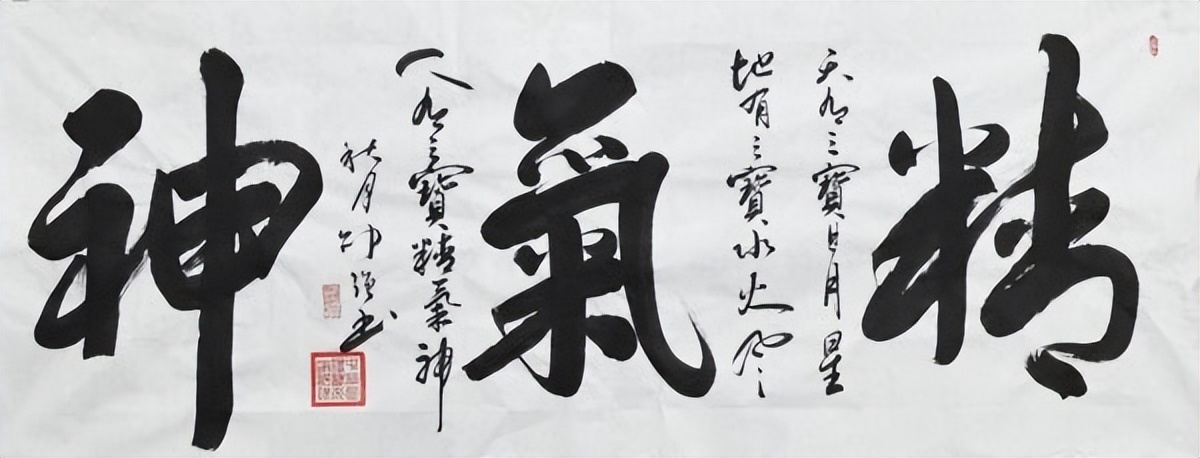 精
天有三寶日月星
地有三寶水火風
氣
人有三寶精氣神
秋月 强書
神